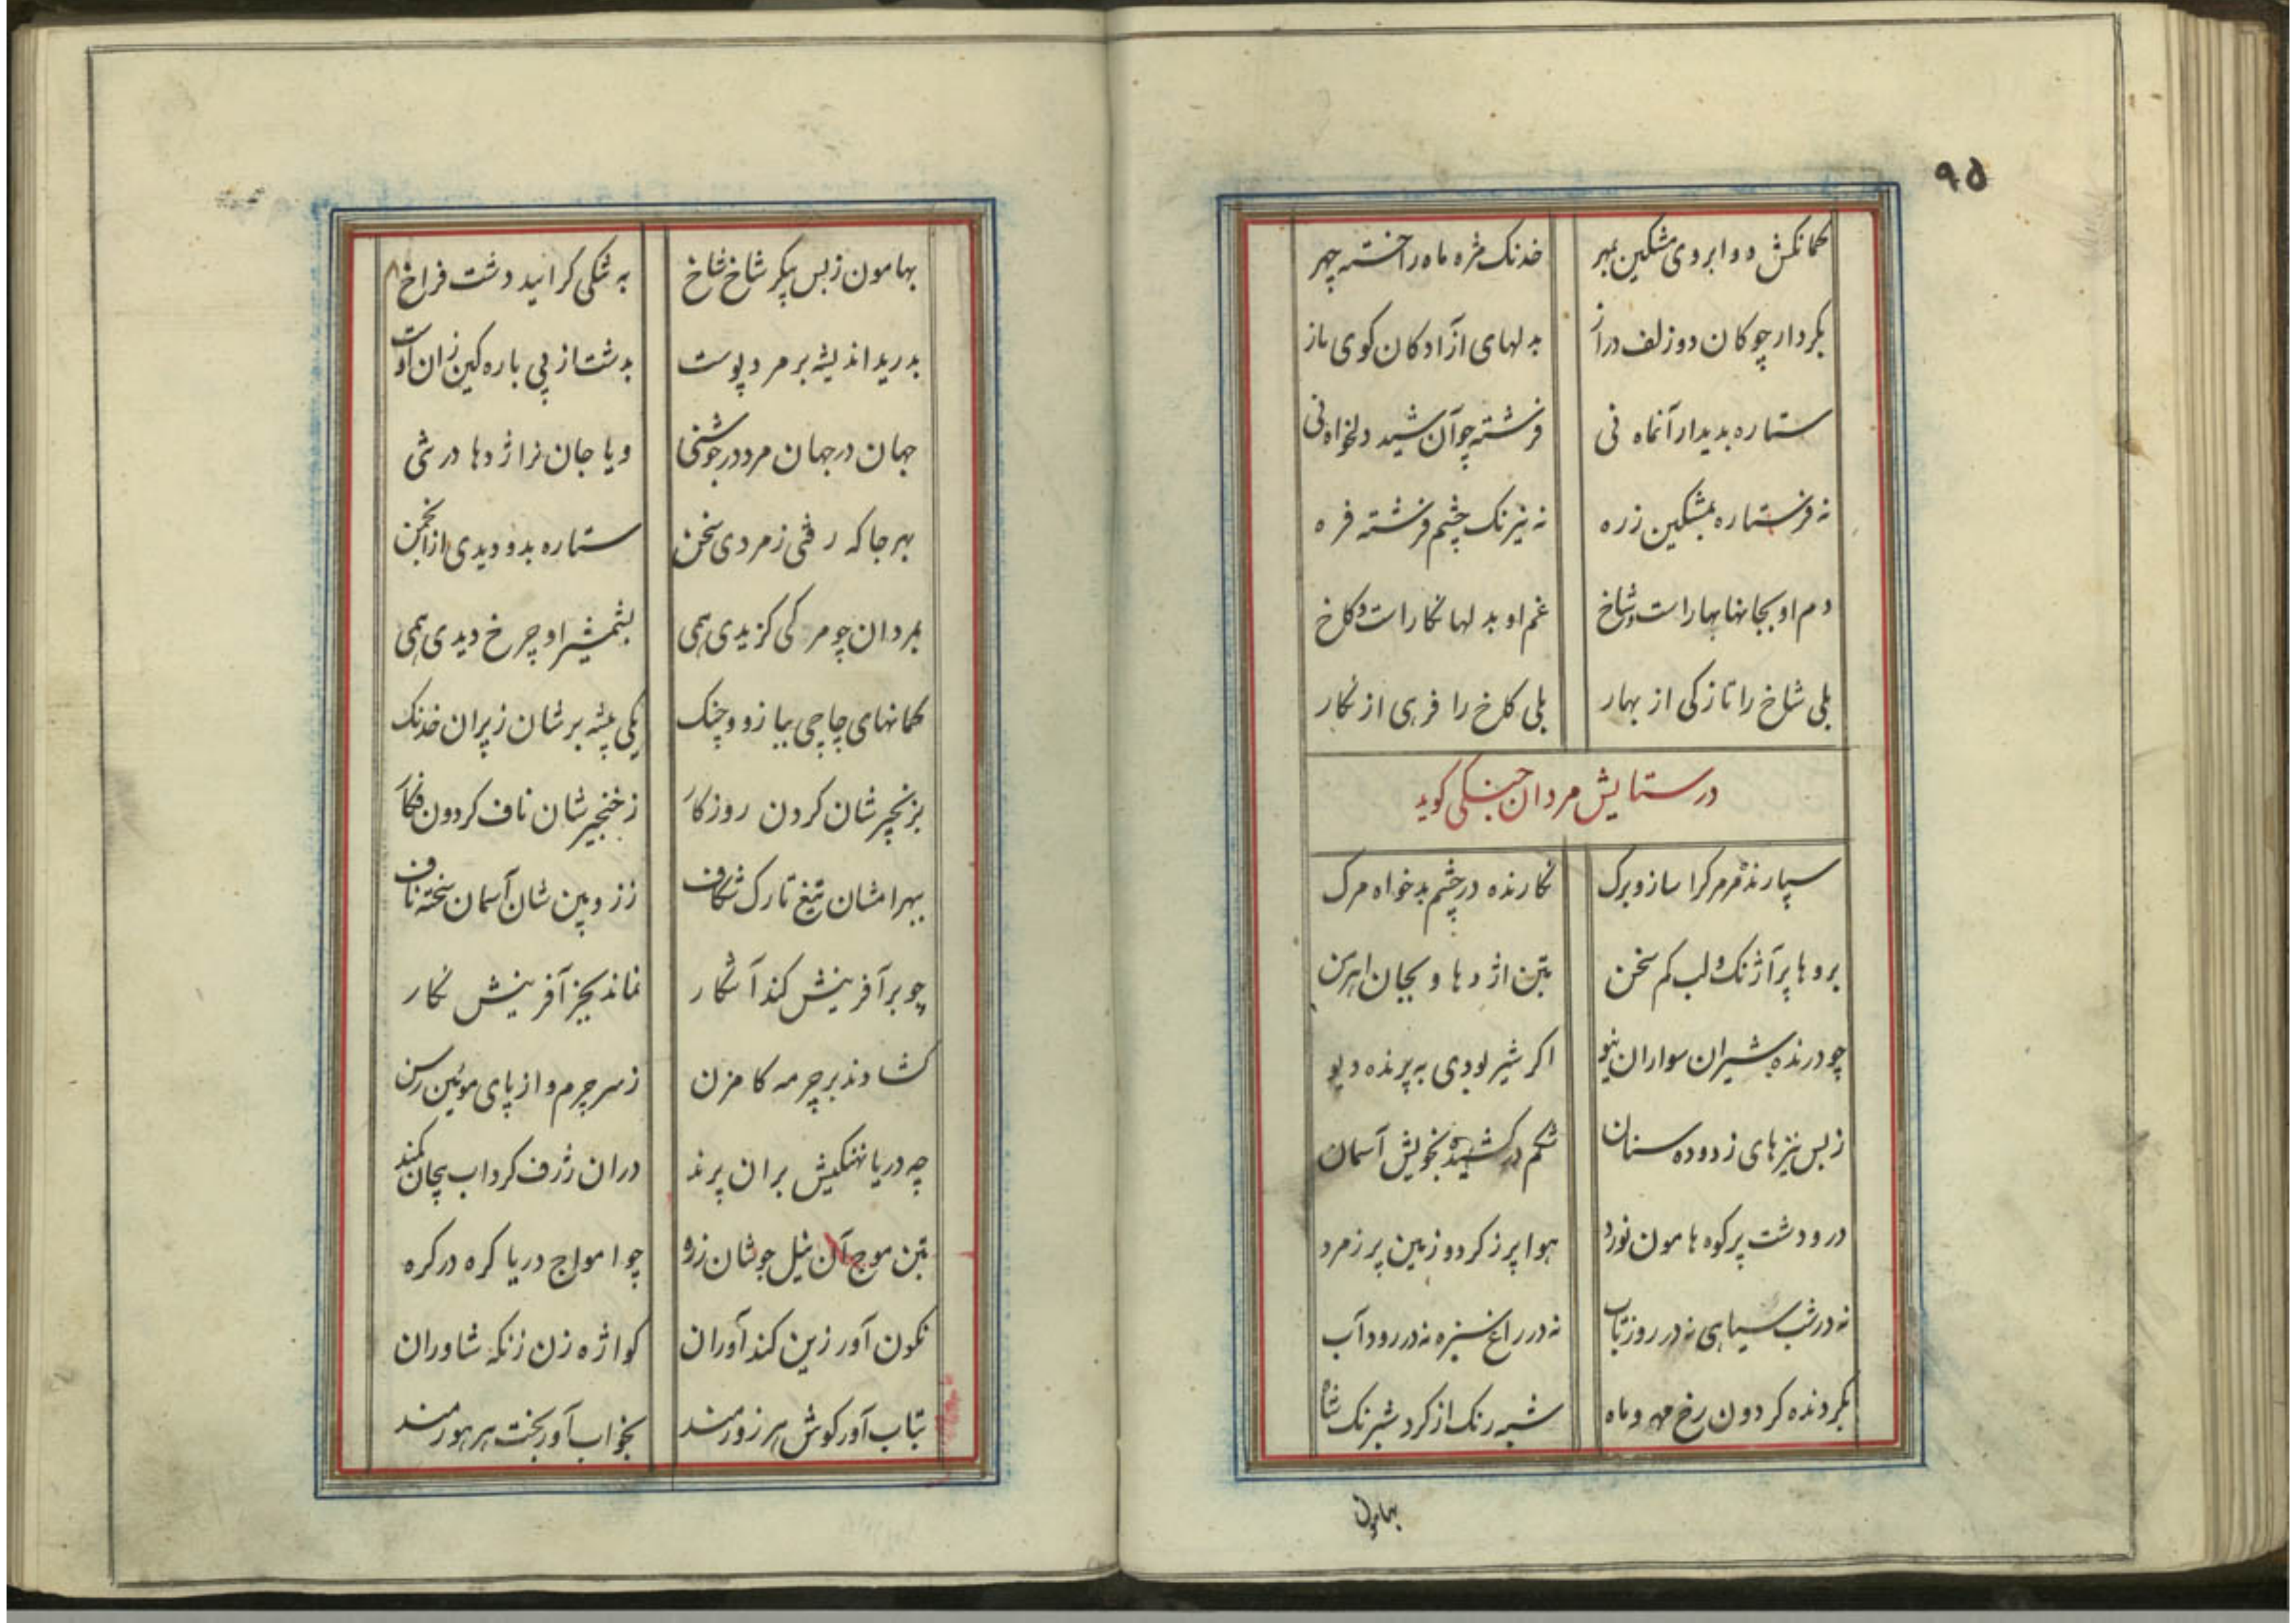 ۹۵
کمانکش دو ابروی مشکین بمهر خدنک مژه ماه را خسته چهر
بکردار چوکان دو زلف دراز بدلهای ازادکان کوی باز
ستاره بدیدار آنماه نی فرشته چو آن شید دلخواه نی
نه فر ستاره بمشکین زره نه نیرنک چشم فرشته فره
دم او بجانها بهارات و شاخ غم او بدلها نکارات و کلخ
بلی شاخ را تازکی از بهار بلی کلخ را فرهی از نکار
در ستایش مردان جنکی کوید
سپارنده مر مرکرا ساز و برک نکارنده در چشم بدخواه مرک
بروها پر آژنک و لب کم سخن بتن اژدها و بجان اهرمن
چو درنده شیران سواران نیو اکر شیر بودی به پرنده دیو
زبس نیزهای زدوده سنان شکم در کشیده بخویش آسمان
در و دشت پر کوه هامون نورد هوا پر ز کرد و زمین پر ز مرد
نه در شب سیاهی نه در روز تاب نه در راغ سبزه نه در رود آب
بکردنده کردون رخ مهر و ماه شبه رنک از کرد شبرنک شاه
بهامون
بهامون زبس پیکر شاخ شاخ به تنکی کرایید دشت فراخ
بدرید اندیشه بر مرد پوست بدشت از پی باره کین زان اوست
جهان در جهان مرد در جوشنی و یا جان نر اژدها در تنی
بهر جا که رفتی ز مردی سخن ستاره بدو دیدی از انجمن
بمردان چو مرکی کزیدی همی بشمشیر او چرخ دیدی همی
کمانهای چاچی ببازو و چنک یکی بیشه بر شان ز پران خدنک
بزنجیر شان کردن روزکار ز خنجیر شان ناف کردون فکار
ببهرامشان تیغ تارک شکاف ز زوبین شان آسمان سخته ناف
چو بر آفرینش کند آشکار نماند بجز آفرینش نکار
کشاوند بر چرمه کامزن ز سر چرم و از پای موئین رسن
چه دریا نهنکیش بران پرند دران ژرف کرداب پیچان کمند
بتن موج آن نیل جوشان زره چو امواج دریا کره در کره
نکون آور زین کند آوران کواژه زن زنکه شاوران
بتاب آور کوش هر زورمند بخواب آور بخت هر هورمند